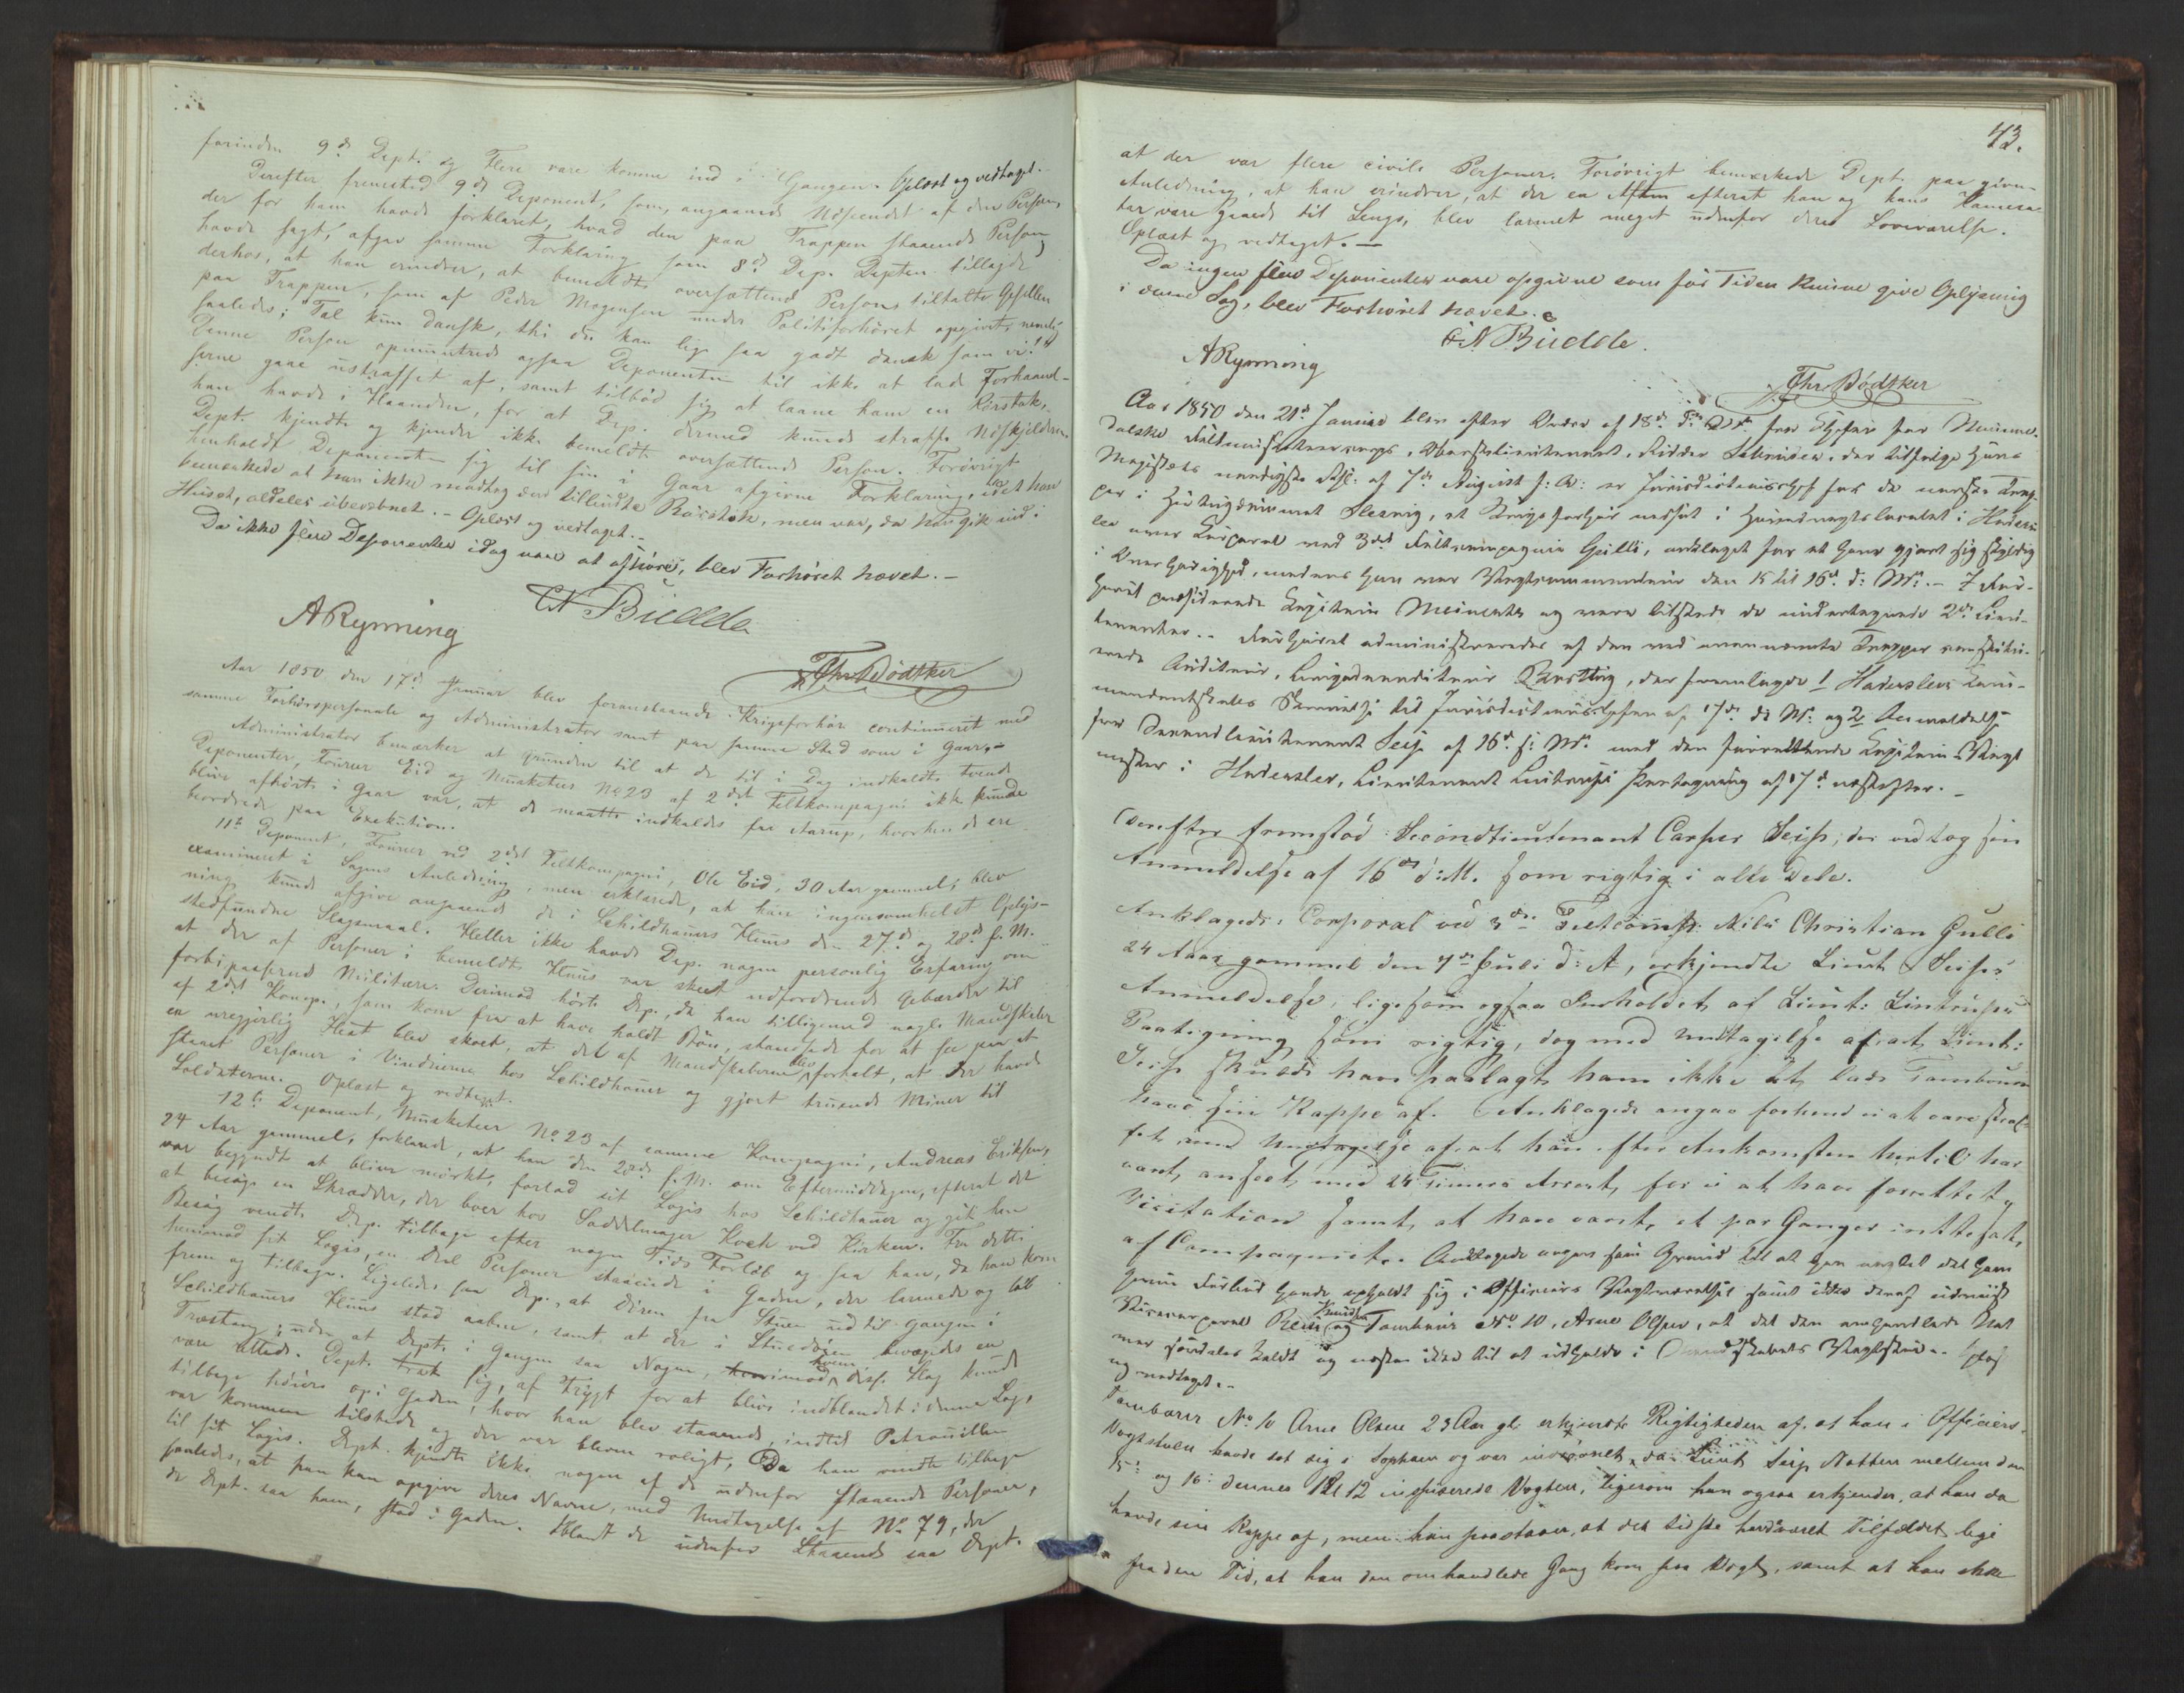 forinden 9de Dept. og Flere vare komne ind i Gangen. Oplæst og vedtaget.
Derefter fremstod 9de Deponent, som, angaaende Udseendet af den Person,
der for ham havde forklaret, hvad den paa Trappen staaende Person
havde sagt, afgav samme Forklaring som 8de Dep. Depten tillagde
derhos, at han erindrer, at bemeldte oversættende Person tiltalte Gesellen
paa Trappen, som af Peder Mogensen under Politiforhöret opgivet, nemlig
saaledes: Tal kun dansk, thi du kan lige saa godt dansk som vi!"
Denne Person opmuntrede ogsaa Deponenten til ikke at lade Forhaand-
serne gaae ustraffet af, samt tilböd sig at laane ham en Rörstok,
han havde i Haanden, for at Dep. dermed kunde straffe
Dept. kjendte og kjender ikke bemeldte oversættende Person. Forövrigt
henholdt Deponenten sig til sin i Gaar afgivne Forklaring, idet han
bemærkede at han ikke modtog den tilbudte Rörstok, men var, da han gik ind i
Huset, aldeles ubevæbnet. - Oplæst og vedtaget. -
Da ikke flere Deponenter idag vare at afhöre, blev Forhöret hævet. -
C N Budde
A Rynning
Thr Bödtker
Aar 1850 den 17de Januar blev foranstaaende Krigsforhör continueret med
samme Forhörspersonale og Administrator samt paa samme Sted som i Gaar. -
Administrator bemærker at Grunden til at de til i Dag indkaldte tvende
Deponenter, Fourer Eid og Musketeer No 23 af 2det Feltkompagni ikke kunde
blive afhörte i Gaar var, at de maatte indkaldes fra Aarup, hvorhen de ere
beordrede paa Exekution.
11te Deponent, Fourer ved 2det Feltkompagni, Ole Eid, 30 Aar gammel, blev
examineret i Sagens Anledning, men erklærede, at han ingensomhelst Oplys-
ning kunde afgive angaaende de i Schildhauers Huus den 27de og 28de f. M.
stedfundne Slagsmaal. Heller ikke havde Dep. nogen personlig Erfaring om
at der af Personer i bemeldte Huus var skeet udfordrende Gebærder til
forbipasserende Militære. Derimod hörte Dep., da han tilligemed nogle Mandskaber
af 2det Komp., som kom fra at have holdt Bön, standsede for at see paa at
en uregjerlig Hest blev skoet, at det af Mandskaberne blev fortalt, at der havde
staaet Personer i Vinduerne hos Schildhauer og gjort truende Miner til
Soldaterne. Oplæst og vedtaget.
12te Deponent, Musketeer No 23 af samme Kompagni, Andreas Eriksen,
24 Aar gammel, forklarede, at han den 28de f. M. om Eftermiddagen, efterat det
var begyndt at blive mörkt, forlod sit Logis hos Schildhauer og gik hen
at besöge en Skrædder, der boer hos Sadelmager Koch ved Kirken. Fra dette
Besög vendte Dep. tilbage efter nogen Tids Forlöb og saa han, da han kom
henimod sit Logis, en Deel Personer staaende i Gaden, der larmede og löb
frem og tilbage. Ligeledes saa Dep., at Dören fra Stuen ud til Gangen i
Schildhauers Huus stod aaben, samt at der i Stuedören bevægedes en
Træstang, uden at Dept. i Gangen saa Nogen, hvorimod hvem disse Slag kunde
være tiltede. Dept. trak sig, af Frygt for at blive indblandet i denne Sag,
tilbage höiere op i Gaden, hvor han blev staaende, indtil Patrouillen
var kommen tilstede og der var bleven roligt, Da han vendte tilbage
til sit Logis. Dept. kjendte ikke nogen af de udenfor staaende Personer,
saaledes, at han kan opgive deres Navne, med Undtagelse af No 79, der
da Dept. saa ham, stod i Gaden. Iblandt de udenfor Staaende saa Dept.
73.
at der var flere civile Personer. Forövrigt bemærkede Dept. paa given
Anledning, at han erindrer, at der en Aften efterat han og hans Kamera-
ter vare gaaede til Sengs, blev larmet meget udenfor deres Soveværelse.
Oplæst og vedtaget. -
Da ingen flere Deponenter vare opgivne som for Tiden kunne give Oplysning
i denne Sag, blev Forhöret hævet.
C N Budde.
A Rynning
Thr Bödtker
Aar 1850 den 21de Januar blev efter Ordre af 18de ds fra Chefen for Nummedalske
Oberstlieutenant, Ridder Schrüder, der ifölge Hans
Majestæts naadigste Resol. af 7de August f: A: er Jurisdictionschef for de norske Trop-
per i Hertugdömmet Slesvig, et Krigsforhör nedsat i Hovedvagtslocalet i Haders-
lev over Corporal ved 3die Feltcompagnie Gulli, anklaget for at have gjort sig skyldig
i Uordentlighed, medens han var Vagtcommandeur den 15 til 16de d: M:. - I For-
höret præsiderede Capitain Meinerts og vare tilstede de undertegnede 2de Lieu-
tenanter. - Forhöret administreredes af den ved ovennævnte Tropper constitu-
erede Auditeur, Brigadeauditeur Rasting, der fremlagde 1 Haderslevs Com-
mandantskabs Skrivelse til Jurisdictionschefen af 17de ds M: og 2 Anmeldelse
fra Secondlieutenant Seip af 16de s: M: med den forrettende Capitain Vagt-
mester i Haderslev, Lieutenant Lintrups Paategning af 17de næstefter. -
Derefter fremstod Secondlieutenant Casper Seip, der vedtog sin
Anmeldelse af 16de d: M. som rigtig i alle Dele.
Anklagede: Corporal ved 3die Feltcomp: Nils Christian Gulli
24 Aar gammel den 7de Juli d: A, erkjendte Lieut Seips
Anmeldelse, ligesom ogsaa Indholdet af Lieut: Lintrups
Paategning som rigtig, dog med Undtagelse af, at Lieut:
Seip skulde have paalagt ham ikke at lade Tambouren
have sin Kappe af. Anklagede angav forhen ei at være straf-
fet, med Undtagelse af, at han efter Ankomsten hertil har
været anseet med 24 Timers Arrest, for ei at have forrettet
Visitation samt, at have været et par Ganger irettesat
af Compagniet. Anklagede angav som Grund til at han uagtet det ham
givne Forbud havde opholdt sig i Officiers Vagtværelset samt ikke deraf udviist
Vicecorporal Knudsen og Tambour No 10, Arne Olsen, at det den omhandlede Nat
var særdeles koldt og næsten ikke til at udholde i Mandskabets Vagtstue. Oplæst
og vedtaget. -
Tambour No 10 Arne Olsen 23 Aar gl. erkjendte Rigtigheden af, at han i Officiers-
Vagtstuen havde sat sig i Sophaen og var indsovnet, da Lieut Seip Natten mellem den
15de og 16de dennes Kl 12 inspicerede Vagten, ligesom han ogsaa erkjender, at han da
havde sin Kappe af, men han paastaaer, at det sidste havde været Tilfældet lige
fra den Tid, at han den omhandlede Gang kom paa Vagt, samt at han ikke